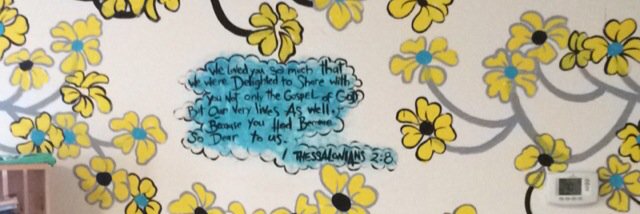 We loved you so much that
We were Delighted to Share with
You Not only the Gospel of God
But Our Very lives As well,
Because You Had Become
So Dear to us.
1 THESSALONIANS 2:8